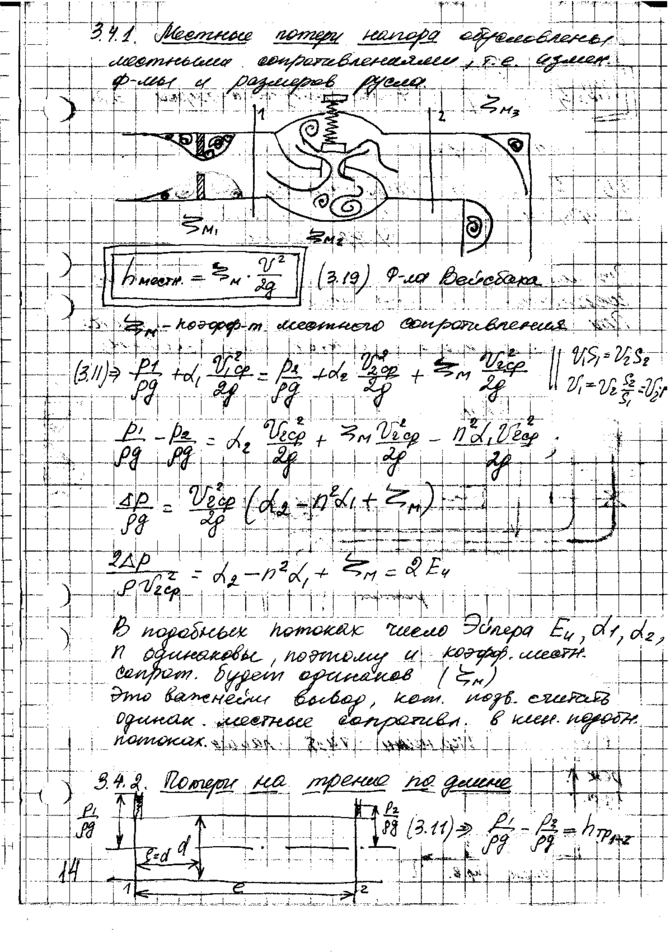 3.4.1. Местные потери напора обусловлены
местными сопротивлениями, т.е. измен.
ф-мы и размеров русла.
1
2
ζм₃
ζм₁
ζм₂
hместн. = ζм · V²/2g (3.19) Ф-ла Вейсбаха
ζм - коэфф-т местного сопротивления
(3.11)⇒ p1/ρg + α₁ V₁ср²/2g = p2/ρg + α₂ V₂ср²/2g + ζм V₂ср²/2g || V₁S₁ = V₂S₂
V₁ = V₂ S₂/S₁ = V₂n
p1/ρg - p2/ρg = α₂ V₂ср²/2g + ζм V₂ср²/2g - n²α₁V₂ср²/2g ;
Δp/ρg = V₂ср²/2g (α₂ - n²α₁ + ζм)
2Δp/ρV₂ср² = α₂ - n²α₁ + ζм = 2Eu
В подобных потоках число Эйлера Eu, α1, α2,
n одинаковы, поэтому и коэфф. местн.
сопрот. будет одинаков (ζм)
Это важнейш вывод, кот. позв. считать
одинак. местные сопротивл. в кин. подобн.
потоках.
3.4.2. Потери на трение по длине
p1/ρg
p2/ρg
(3.11)⇒ p1/ρg - p2/ρg = hтр₁₋₂
ξ=d d
1 ℓ 2
14